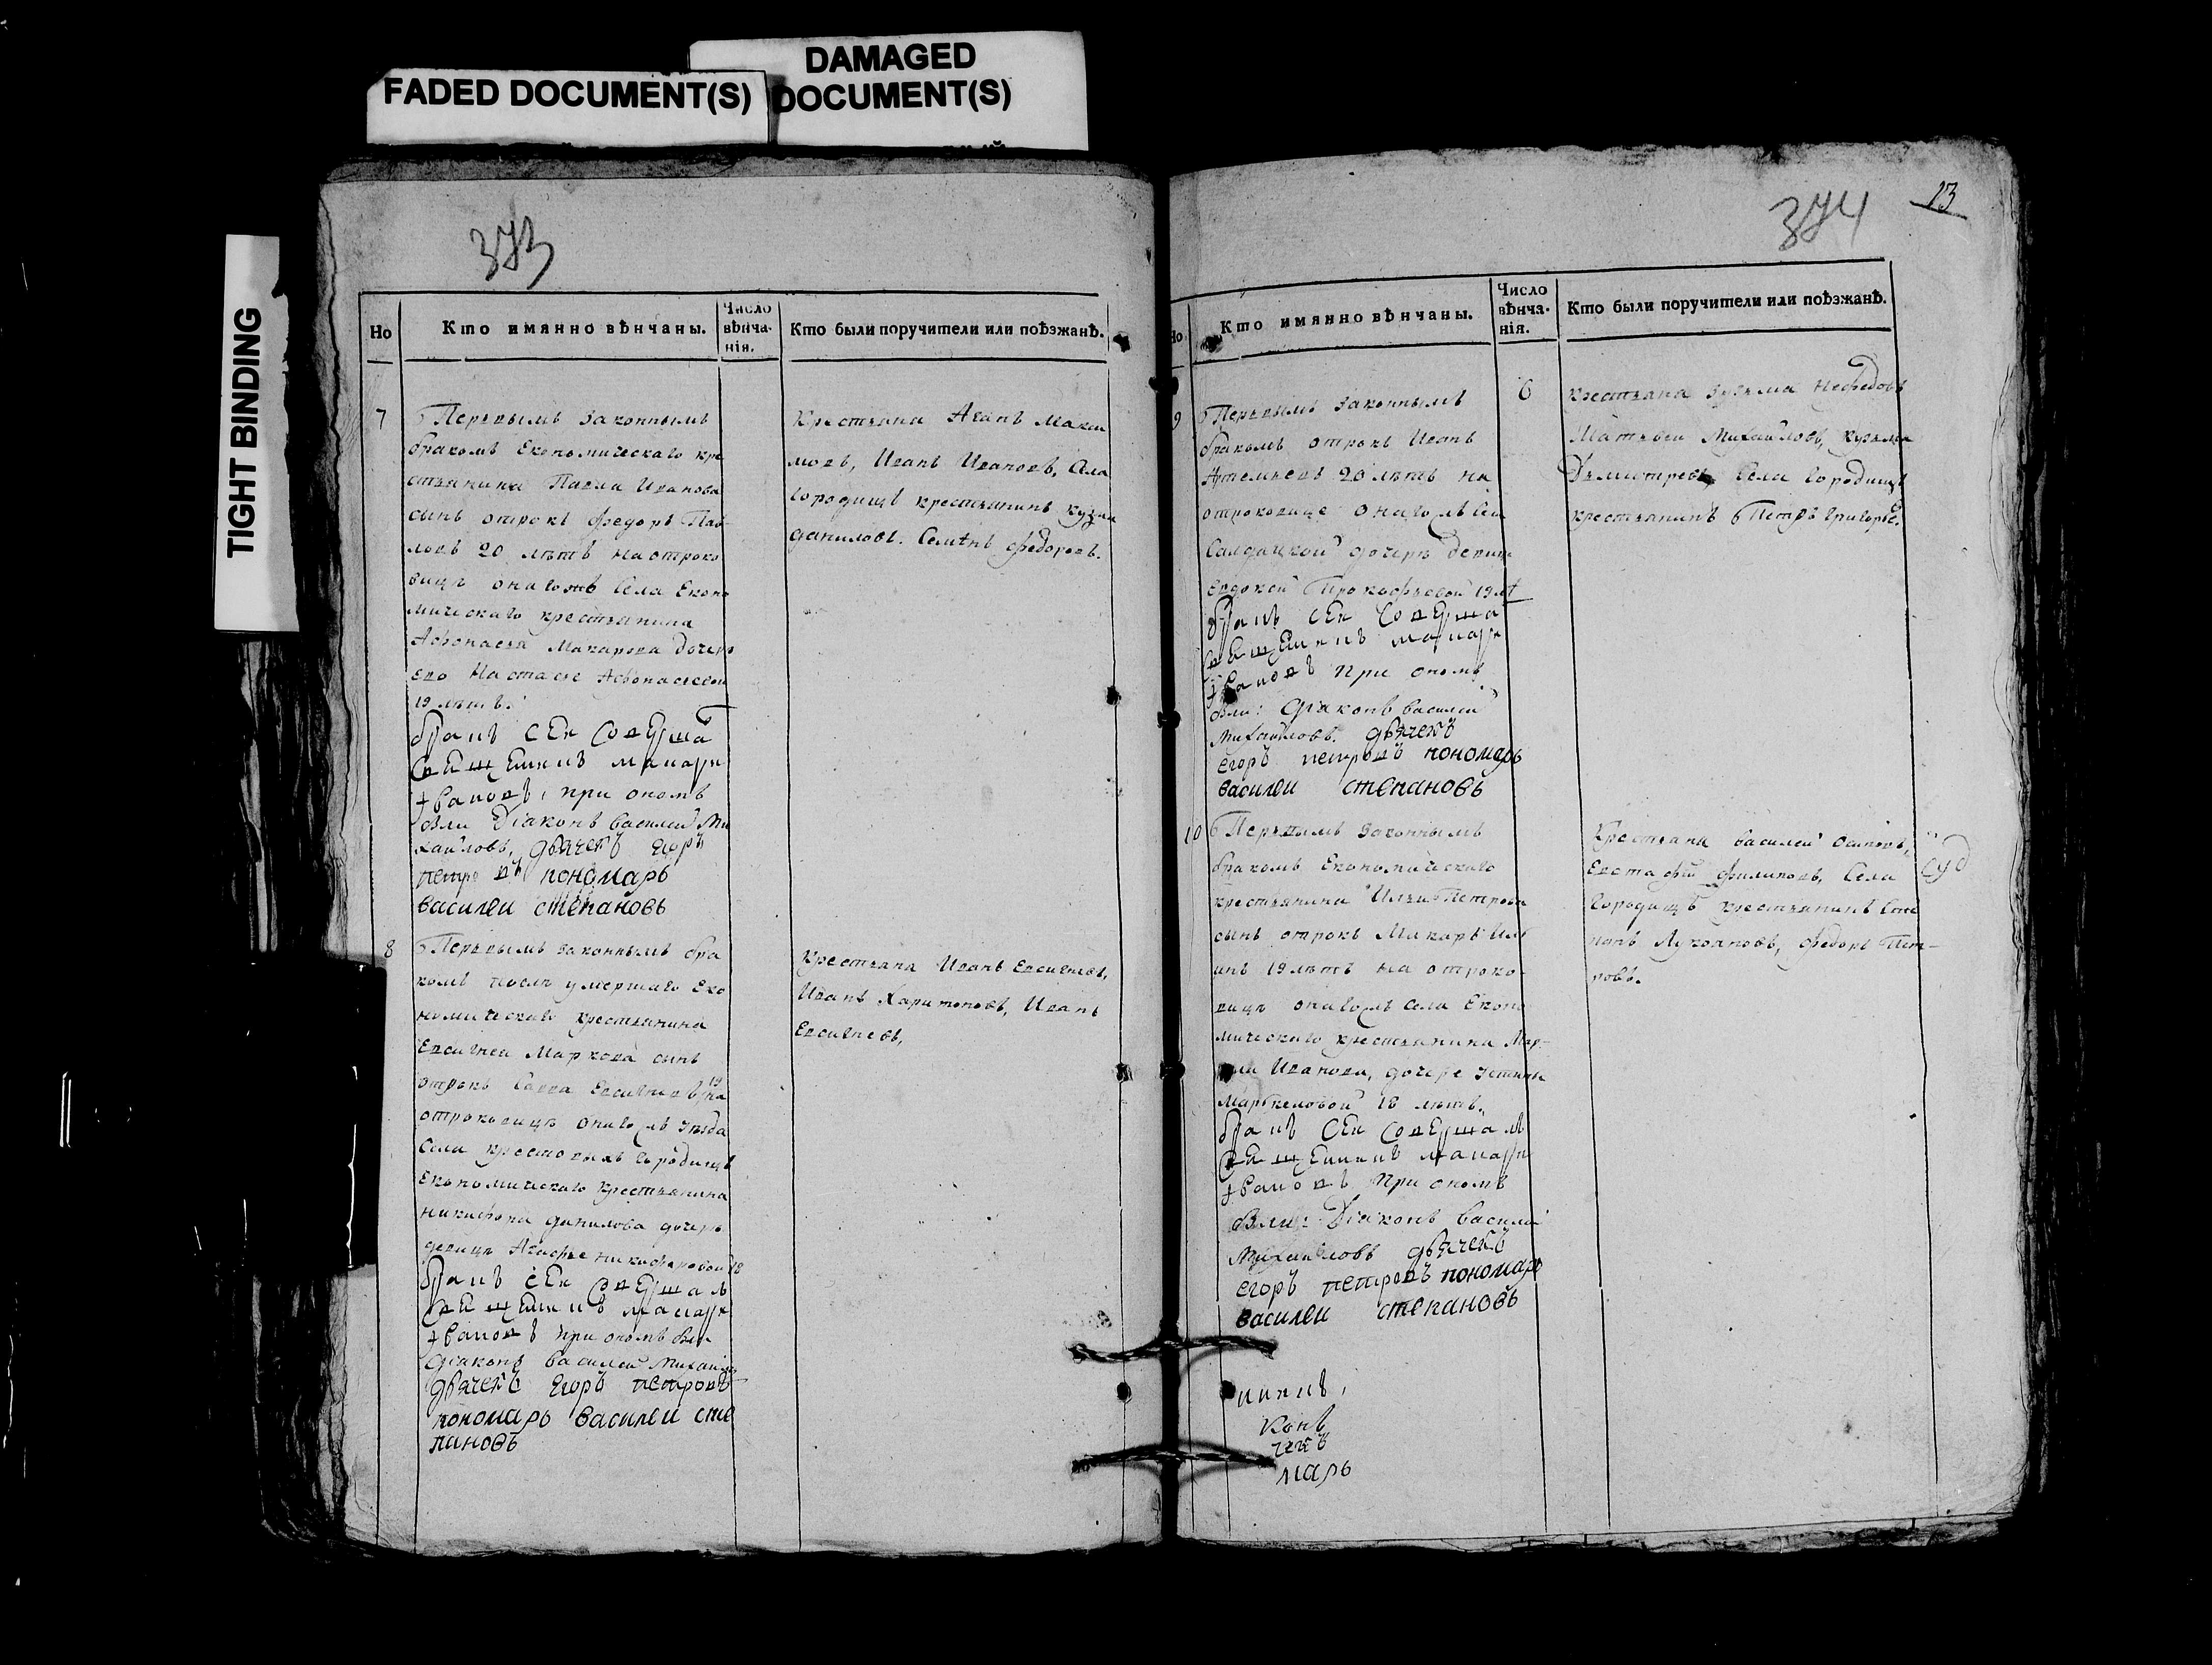 DAMAGED
DOCUMENT(S)
FADED DOCUMENT(S)
TIGHT BINDING
373
Но
Кто имянно вѣнчаны.
Число
вѣнча-
нія.
Кто были поручители или поѣзжанѣ.
7
Первымъ законнымъ
бракомъ Економическаго кре
стьянина Павла Иванова
сынъ отрокъ Федоръ Пав
ловъ 20 лѣтъ на отроко
вицѣ онагожъ села Еконо
мическаго крестьянина
Афонасья Макарова дочерью
ево Настасье Афонасьевой
19 лѣтъ.
бракъ сей соверша
священникъ макари
Iвановъ, при ономъ
были Діаконъ василей Ми
хайловъ, дьячекъ егоръ
петровъ пономарь
василеи степановъ
Крестьяна Агапъ Макси
мовъ, Иванъ Ивановъ, села
городищъ крестьянинъ кузма
даниловъ. Семѣнъ федоровъ.
8
Первымъ законнымъ бра
комъ послѣ умершаго Еко
номическаго крестьянина
Евсигнея Маркова сынъ
отрокъ Савва Евсигнеевъ 19 на
отроковицѣ онагожъ уѣзда
села крестовыхъ городищъ
Економическаго крестьянина
никифора данилова дочерью
девицѣ Агафье никифоровой 18
бракъ сей совершалъ
священникъ макари
Iвановъ при ономъ были
діаконъ василей Михайловъ
дьячекъ егоръ петровъ
пономарь василеи сте
пановъ
Крестьяна Иванъ Евсигнеевъ,
Иванъ Харитоновъ, Иванъ
Евсигнеевъ,
374
13
Но
Кто имянно вѣнчаны.
Число
вѣнча-
нія.
Кто были поручители или поѣзжанѣ.
9
Первымъ законнымъ
бракомъ отрокъ Иванъ
Артемьевъ 20 лѣтъ на
отроковице онагожъ села
Салдацкой дочерѣ девице
Евдокеи Прокофьевой 19 лѣт
бракъ сей соверша
священникъ макари
Iвановъ при ономъ
были: діаконъ василей
Михайловъ. дьячекъ
егоръ петровъ пономарь
василеи степановъ
6
крестьяна Нефедовъ
Матьвеи Михайловъ, кузьма
Дьмитревъ, села городищъ
крестьянинъ Петръ григорьев.
10
Первымъ законнымъ
бракомъ Економическаго
крестьянина Ильи Петрова
сынъ отрокъ Макаръ Иль
инъ 19 лѣтъ на отроко
вицѣ онагожъ села Еконо
мическаго крестьянина Мар-
Иванова, дочере Устиньи
Маркеловой 18 лѣтъ.
бракъ сей совершалъ
священникъ макари
Iвановъ при ономъ
были: Діаконъ василей
Михайловъ дьячекъ
егоръ петровъ пономарь
василеи степановъ
Крестьяна василей осиповъ,
Евстафей филиповъ, села
городищъ крестьянинъ сте
панъ Лукояновъ, федоръ Пет-
ровъ.
никъ,
конъ
чекъ
марь